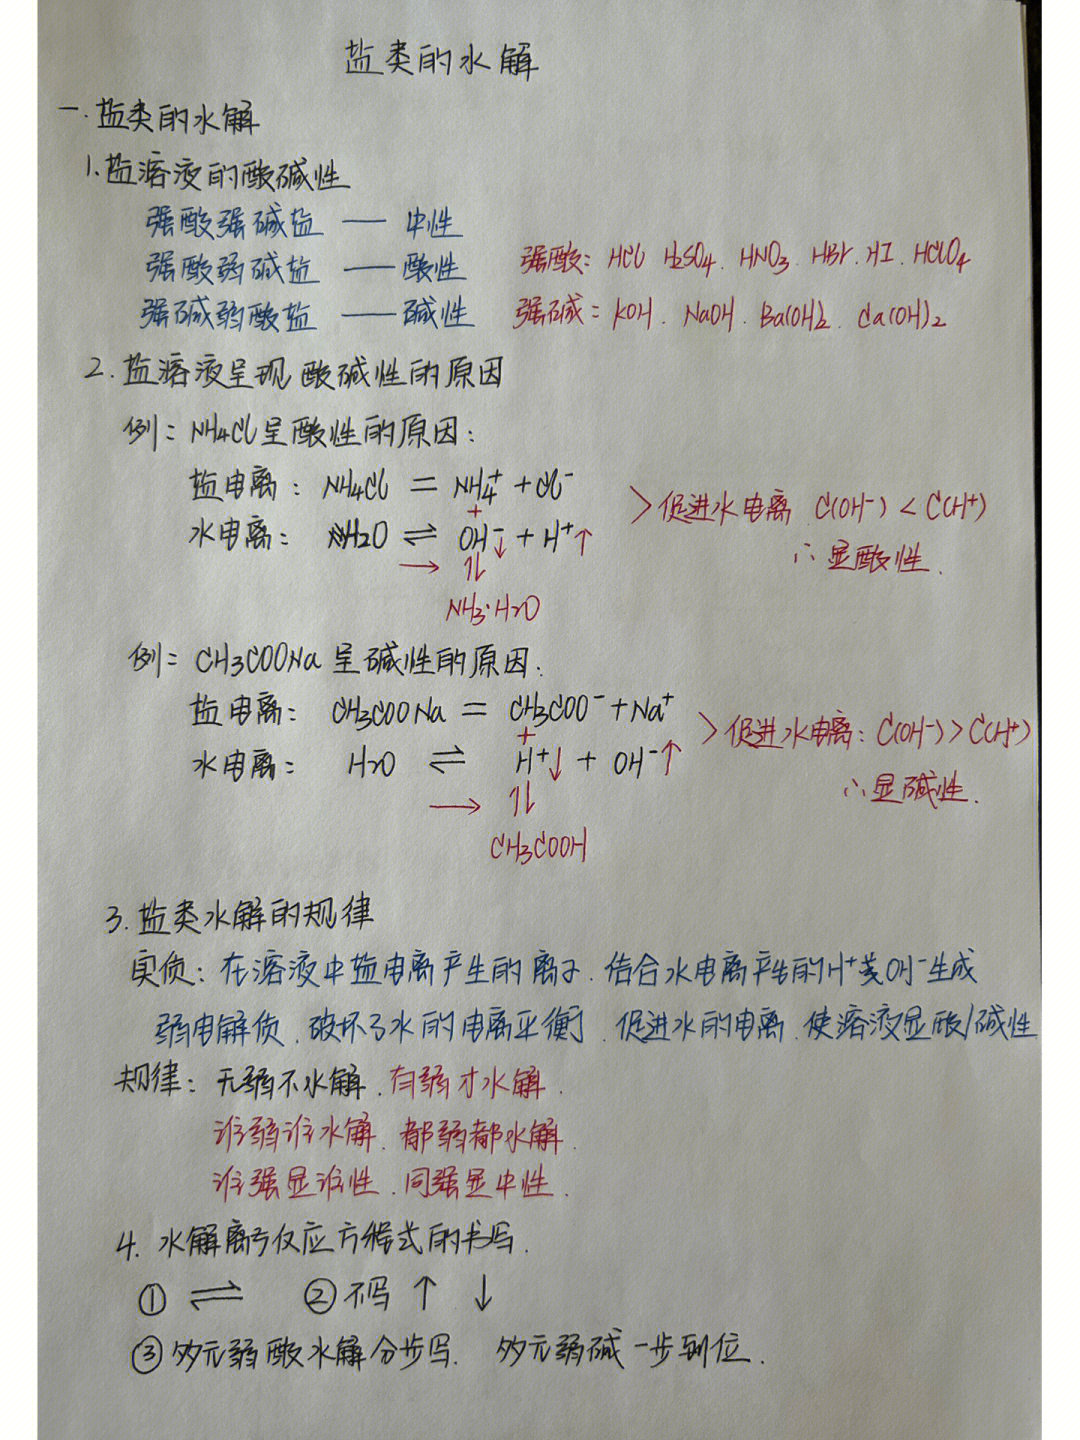 盐类的水解
一.盐类的水解
1.盐溶液的酸碱性
强酸强碱盐 —— 中性
强酸弱碱盐 —— 酸性 强酸: HCl H₂SO₄. HNO₃. HBr. HI. HClO₄
强碱弱酸盐 —— 碱性 强碱: KOH. NaOH. Ba(OH)₂. Ca(OH)₂
2.盐溶液呈现酸碱性的原因
例: NH₄Cl呈酸性的原因:
盐电离: NH₄Cl = NH₄⁺ + Cl⁻
+
水电离: H₂O ⇌ OH⁻↓ + H⁺↑ >促进水电离 C(OH⁻) < C(H⁺)
→ ⇅ ∴显酸性.
NH₃·H₂O
例: CH₃COONa 呈碱性的原因.
盐电离: CH₃COONa = CH₃COO⁻ + Na⁺
+ >促进水电离: C(OH⁻) > C(H⁺)
水电离: H₂O ⇌ H⁺↓ + OH⁻↑
→ ⇅ ∴显碱性.
CH₃COOH
3.盐类水解的规律
实质: 在溶液中盐电离产生的离子.结合水电离产生的H⁺或OH⁻生成
弱电解质.破坏了水的电离平衡.促进水的电离.使溶液显酸/碱性
规律: 无弱不水解.有弱才水解.
谁弱谁水解.都弱都水解.
谁强显谁性.同强显中性.
4.水解离子反应方程式的书写.
① ⇌ ②不写 ↑ ↓
③多元弱酸水解分步写. 多元弱碱一步到位.